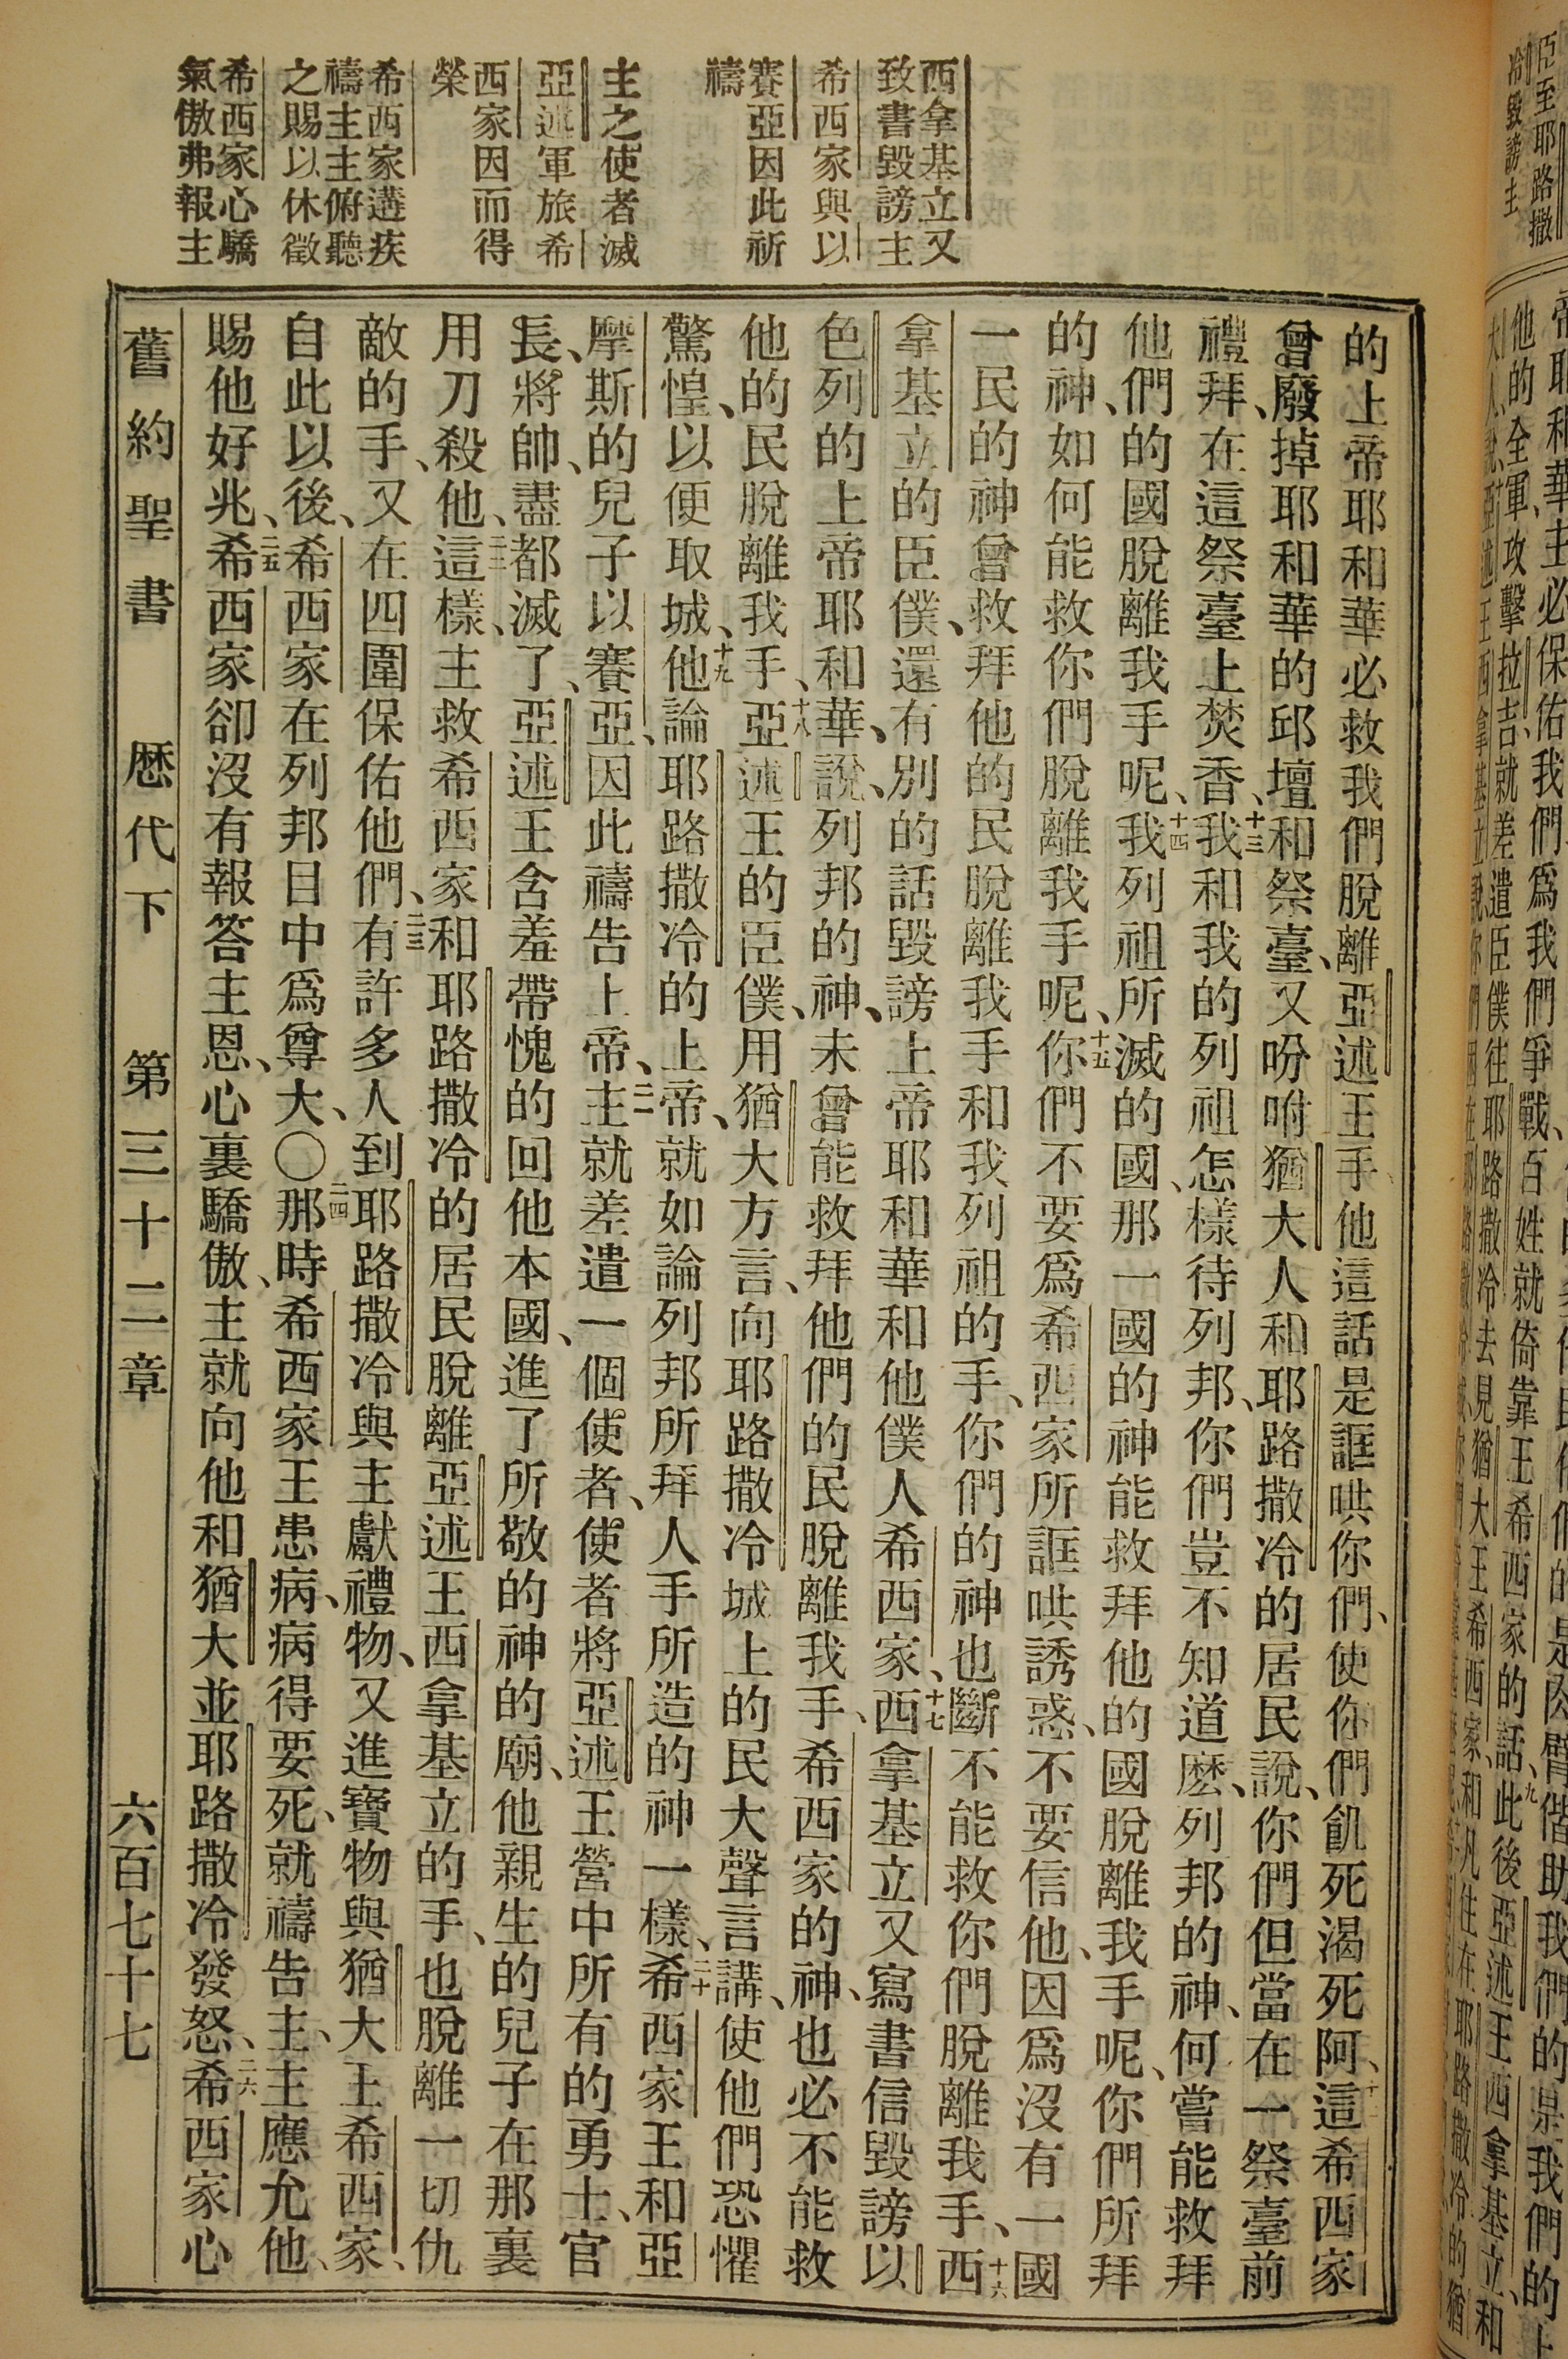 西拿基立又
致書毀謗主
希西家與以
賽亞因此祈
禱
主之使者滅
亞述軍旅希
西家因而得
榮
希西家遘疾
禱主主俯聽
之賜以休徵
希西家心驕
氣傲弗報主
的上帝耶和華必救我們脫離亞述王手他這話是誆哄你們、使你們飢死渴死阿、十二這希西家
曾廢掉耶和華的邱壇和祭臺、又吩咐猶大人和耶路撒冷的居民說、你們但當在一祭臺前
禮拜、在這祭臺上焚香、十三我和我的列祖怎樣待列邦、你們豈不知道麽、列邦的神、何嘗能救拜
他們的國脫離我手呢、十四我列祖所滅的國、那一國的神能救拜他的國脫離我手呢、你們所拜
的神、如何能救你們脫離我手呢、十五你們不要爲希西家所誆哄誘惑、不要信他、因爲沒有一國
一民的神曾救拜他的民脫離我手和我列祖的手、你們的神也斷不能救你們脫離我手、十六西
拿基立的臣僕、還有別的話毀謗上帝耶和華和他僕人希西家、十七西拿基立又寫書信毀謗以
色列的上帝耶和華、說、列邦的神、未曾能救拜他們的民脫離我手、希西家的神、也必不能救
他的民脫離我手、十八亞述王的臣僕、用猶大方言、向耶路撒冷城上的民大聲言講、使他們恐懼
驚惶、以便取城、十九他論耶路撒冷的上帝、就如論列邦所拜人手所造的神一樣、二十希西家王和亞
摩斯的兒子以賽亞、因此禱告上帝、二一主就差遣一個使者、使者將亞述王營中所有的勇士、官
長、將帥、盡都滅了、亞述王含羞帶愧的回他本國、進了所敬的神的廟、他親生的兒子在那裏
用刀殺他、二二這樣、主救希西家和耶路撒冷的居民脫離亞述王西拿基立的手、也脫離一切仇
敵的手、又在四圍保佑他們、二三有許多人到耶路撒冷與主獻禮物、又進寶物與猶大王希西家、
自此以後、希西家在列邦目中爲尊大、〇二四那時希西家王患病、病得要死、就禱告主、主應允他、
賜他好兆、二五希西家卻沒有報答主恩、心裏驕傲、主就向他和猶大並耶路撒冷發怒、二六希西家心
舊約聖書 歷代下 第三十二章 六百七十七